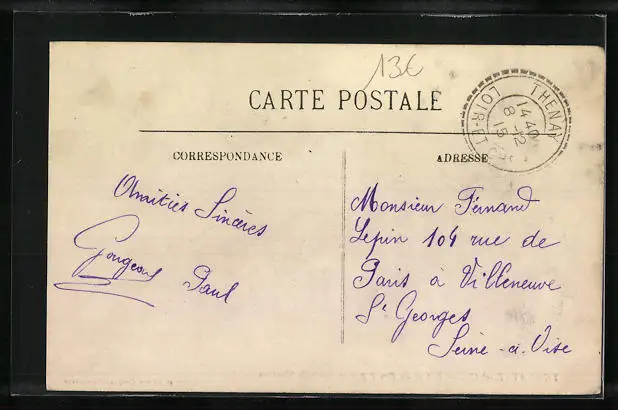 13€
CARTE POSTALE
THENAY
LOIR-ET-
14 40
8 -12
15
CORRESPONDANCE
ADRESSE
Amitiés Sincères
Gougeon Paul
Monsieur Fernand
Lepin 104 rue de
Paris à Villeneuve
St Georges
Seine-a-Oise